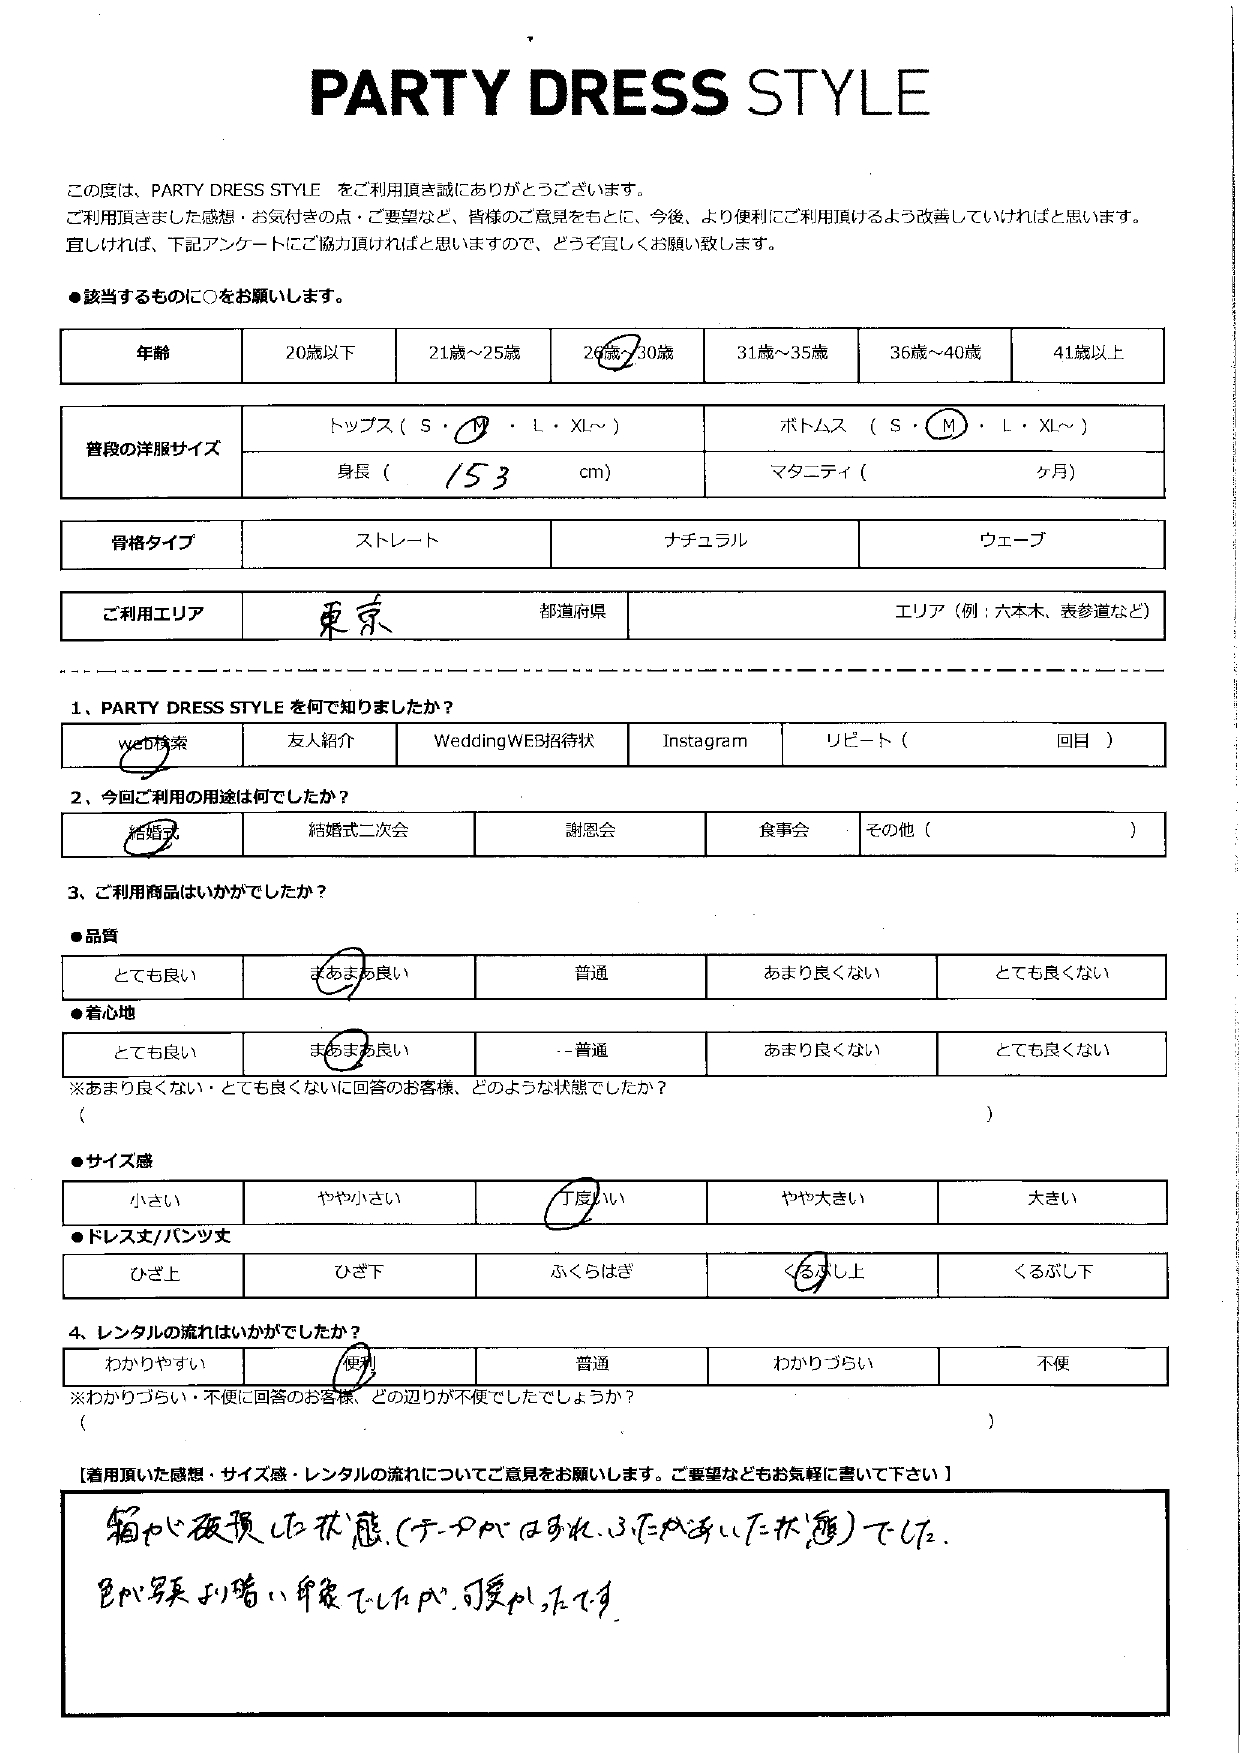 PARTY DRESS STYLE
この度は、PARTY DRESS STYLE をご利用頂き誠にありがとうございます。
ご利用頂きました感想・お気付きの点・ご要望など、皆様のご意見をもとに、今後、より便利にご利用頂けるよう改善していければと思います。
宜しければ、下記アンケートにご協力頂ければと思いますので、どうぞ宜しくお願い致します。
●該当するものに○をお願いします。
年齢 20歳以下 21歳～25歳 26歳～30歳 31歳～35歳 36歳～40歳 41歳以上
普段の洋服サイズ
トップス ( S ・ M ・ L ・ XL～ ) ボトムス ( S ・ M ・ L ・ XL～ )
身長 ( 153 cm) マタニティ ( ヶ月)
骨格タイプ ストレート ナチュラル ウェーブ
ご利用エリア 東京 都道府県 エリア（例：六本木、表参道など）
1、PARTY DRESS STYLE を何で知りましたか？
web検索 友人紹介 WeddingWEB招待状 Instagram リピート ( 回目 )
2、今回ご利用の用途は何でしたか？
結婚式 結婚式二次会 謝恩会 食事会 その他 ( )
3、ご利用商品はいかがでしたか？
●品質
とても良い まあまあ良い 普通 あまり良くない とても良くない
●着心地
とても良い まあまあ良い 普通 あまり良くない とても良くない
※あまり良くない・とても良くないに回答のお客様、どのような状態でしたか？
( )
●サイズ感
小さい やや小さい 丁度いい やや大きい 大きい
●ドレス丈/パンツ丈
ひざ上 ひざ下 ふくらはぎ くるぶし上 くるぶし下
4、レンタルの流れはいかがでしたか？
わかりやすい 便利 普通 わかりづらい 不便
※わかりづらい・不便に回答のお客様、どの辺りが不便でしたでしょうか？
( )
【着用頂いた感想・サイズ感・レンタルの流れについてご意見をお願いします。ご要望などもお気軽に書いて下さい】
箱が破損した状態.(テープがはずれ、ふたがあいた状態)でした.
色が写真より暗い印象でしたが、可愛かったです.